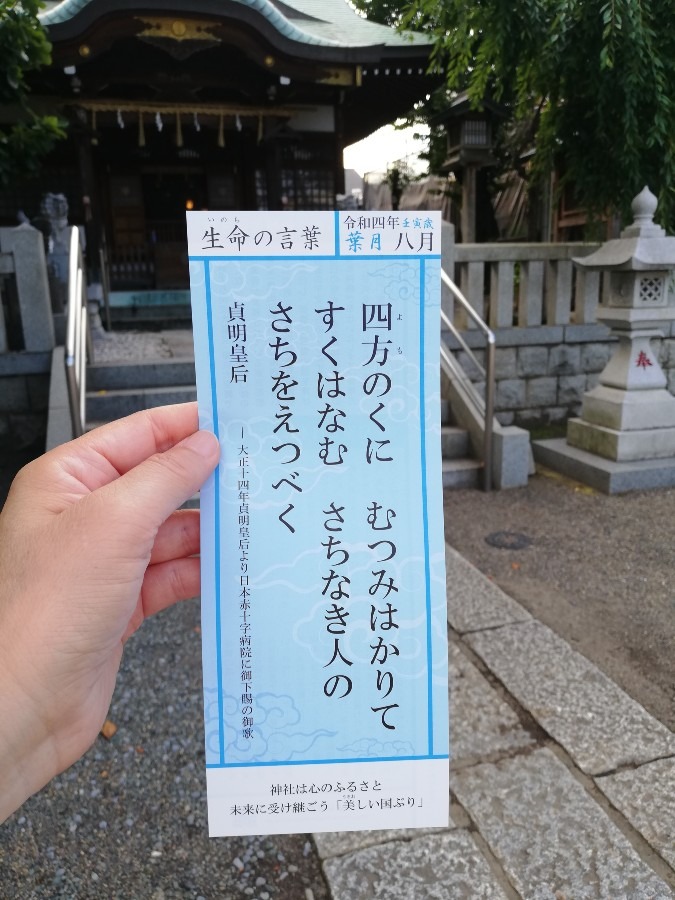 いのち
生命の言葉
令和四年 壬寅歳
葉月 八月
よも
四方のくに　むつみはかりて
すくはなむ　さちなき人の
さちをえつべく
貞明皇后
― 大正十四年貞明皇后より日本赤十字病院に御下賜の御歌
神社は心のふるさと
未来に受け継ごう「美しい国ぶり」